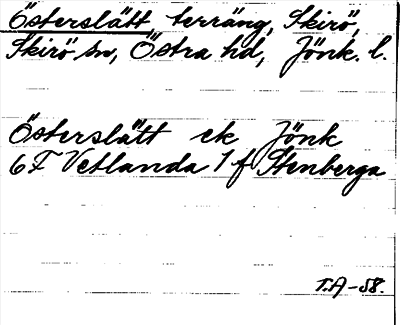 Österslätt terräng, Skirö,
Skirö sn, Östra hd, Jönk. l.
Österslätt ek Jönk
6F Vetlanda 1 f Stenberga
T.A-58.